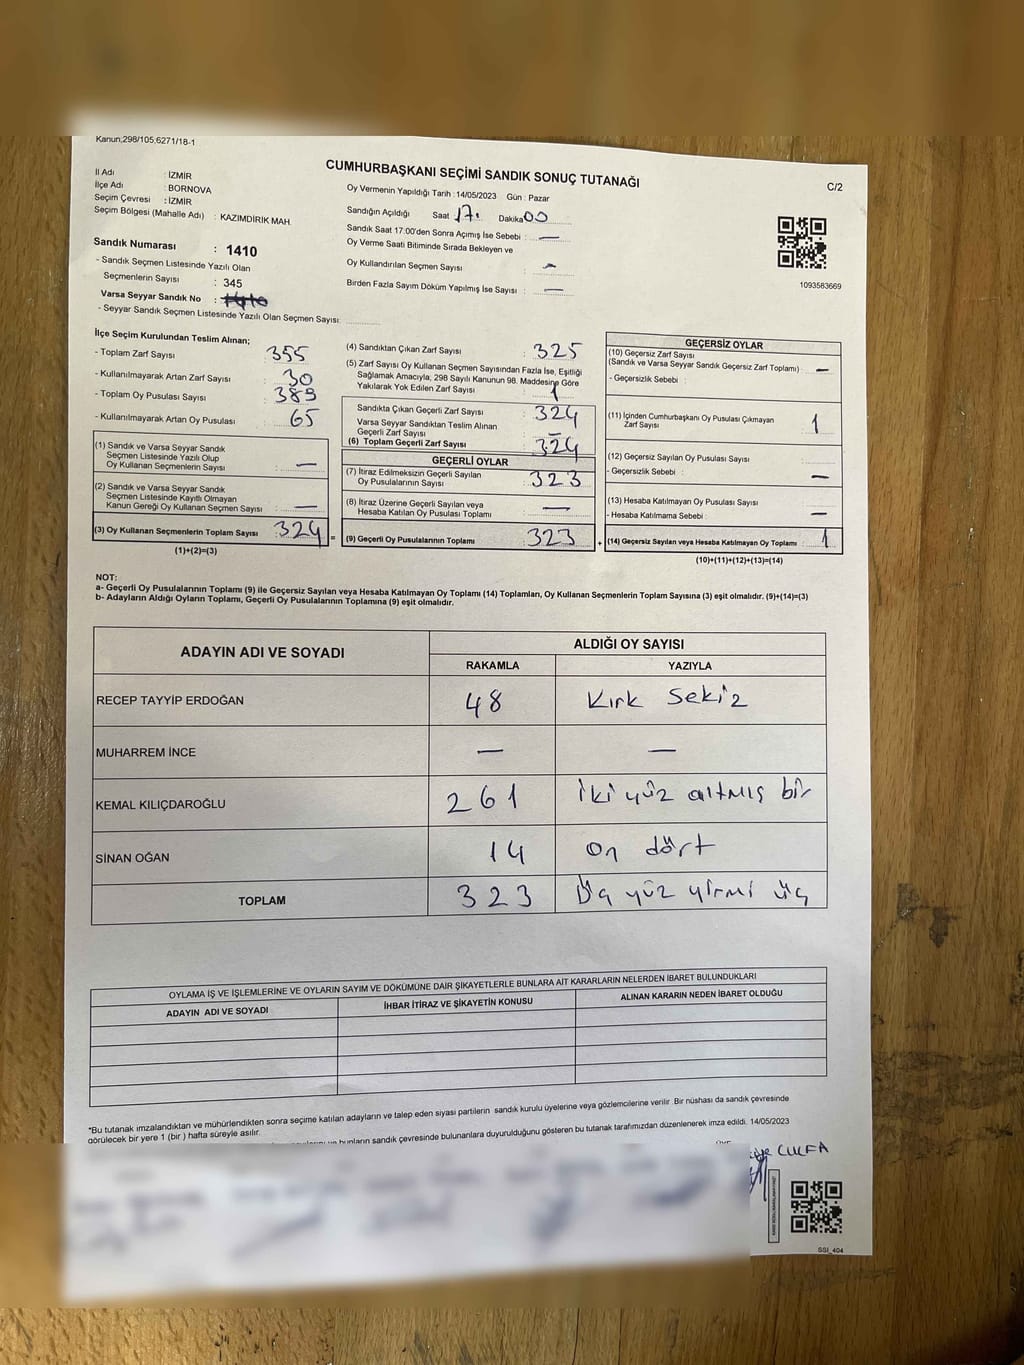 Kanun;298/105;6271/18-1
CUMHURBAŞKANI SEÇİMİ SANDIK SONUÇ TUTANAĞI
C/2
İl Adı : İZMİR
İlçe Adı : BORNOVA
Seçim Çevresi : İZMİR
Seçim Bölgesi (Mahalle Adı) : KAZIMDİRİK MAH.
Sandık Numarası : 1410
- Sandık Seçmen Listesinde Yazılı Olan
Seçmenlerin Sayısı : 345
Varsa Seyyar Sandık No :
- Seyyar Sandık Seçmen Listesinde Yazılı Olan Seçmen Sayısı:
Oy Vermenin Yapıldığı Tarih : 14/05/2023 Gün : Pazar
Sandığın Açıldığı Saat 17. Dakika 00
Sandık Saat 17:00'den Sonra Açımış İse Sebebi : —
Oy Verme Saati Bitiminde Sırada Bekleyen ve
Oy Kullandırılan Seçmen Sayısı : —
Birden Fazla Sayım Döküm Yapılmış İse Sayısı : —
1093583669
İlçe Seçim Kurulundan Teslim Alınan;
- Toplam Zarf Sayısı : 355
- Kullanılmayarak Artan Zarf Sayısı : 30
- Toplam Oy Pusulası Sayısı : 389
- Kullanılmayarak Artan Oy Pusulası : 65
(1) Sandık ve Varsa Seyyar Sandık
Seçmen Listesinde Yazılı Olup
Oy Kullanan Seçmenlerin Sayısı : —
(2) Sandık ve Varsa Seyyar Sandık
Seçmen Listesinde Kayıtlı Olmayan
Kanun Gereği Oy Kullanan Seçmen Sayısı : —
(3) Oy Kullanan Seçmenlerin Toplam Sayısı : 324 =
(1)+(2)=(3)
(4) Sandıktan Çıkan Zarf Sayısı : 325
(5) Zarf Sayısı Oy Kullanan Seçmen Sayısından Fazla İse, Eşitliği
Sağlamak Amacıyla, 298 Sayılı Kanunun 98. Maddesine Göre
Yakılarak Yok Edilen Zarf Sayısı : 1
Sandıkta Çıkan Geçerli Zarf Sayısı : 324
Varsa Seyyar Sandıktan Teslim Alınan
Geçerli Zarf Sayısı : —
(6) Toplam Geçerli Zarf Sayısı : 324
GEÇERLİ OYLAR
(7) İtiraz Edilmeksizin Geçerli Sayılan
Oy Pusulalarının Sayısı : 323
(8) İtiraz Üzerine Geçerli Sayılan veya
Hesaba Katılan Oy Pusulası Toplamı : —
(9) Geçerli Oy Pusulalarının Toplamı : 323 +
GEÇERSİZ OYLAR
(10) Geçersiz Zarf Sayısı
(Sandık ve Varsa Seyyar Sandık Geçersiz Zarf Toplamı) : —
- Geçersizlik Sebebi :
(11) İçinden Cumhurbaşkanı Oy Pusulası Çıkmayan
Zarf Sayısı : 1
(12) Geçersiz Sayılan Oy Pusulası Sayısı :
- Geçersizlik Sebebi : —
(13) Hesaba Katılmayan Oy Pusulası Sayısı :
- Hesaba Katılmama Sebebi : —
(14) Geçersiz Sayılan veya Hesaba Katılmayan Oy Toplamı : 1
(10)+(11)+(12)+(13)=(14)
NOT:
a- Geçerli Oy Pusulalarının Toplamı (9) ile Geçersiz Sayılan veya Hesaba Katılmayan Oy Toplamı (14) Toplamları, Oy Kullanan Seçmenlerin Toplam Sayısına (3) eşit olmalıdır. (9)+(14)=(3)
b- Adayların Aldığı Oyların Toplamı, Geçerli Oy Pusulalarının Toplamına (9) eşit olmalıdır.
ADAYIN ADI VE SOYADI ALDIĞI OY SAYISI
RAKAMLA YAZIYLA
RECEP TAYYİP ERDOĞAN 48 Kırk Sekiz
MUHARREM İNCE — —
KEMAL KILIÇDAROĞLU 261 iki yüz altmış bir
SİNAN OĞAN 14 on dört
TOPLAM 323 Üç yüz yirmi üç
OYLAMA İŞ VE İŞLEMLERİNE VE OYLARIN SAYIM VE DÖKÜMÜNE DAİR ŞİKAYETLERLE BUNLARA AİT KARARLARIN NELERDEN İBARET BULUNDUKLARI
ADAYIN ADI VE SOYADI İHBAR İTİRAZ VE ŞİKAYETİN KONUSU ALINAN KARARIN NEDEN İBARET OLDUĞU
*Bu tutanak imzalandıktan ve mühürlendikten sonra seçime katılan adayların ve talep eden siyasi partilerin sandık kurulu üyelerine veya gözlemcilerine verilir. Bir nüshası da sandık çevresinde
görülecek bir yere 1 (bir) hafta süreyle asılır.
bunların sandık çevresinde bulunanlara duyurulduğunu gösteren bu tutanak tarafımızdan düzenlenerek imza edildi. 14/05/2023
CULFA
SSİ_404